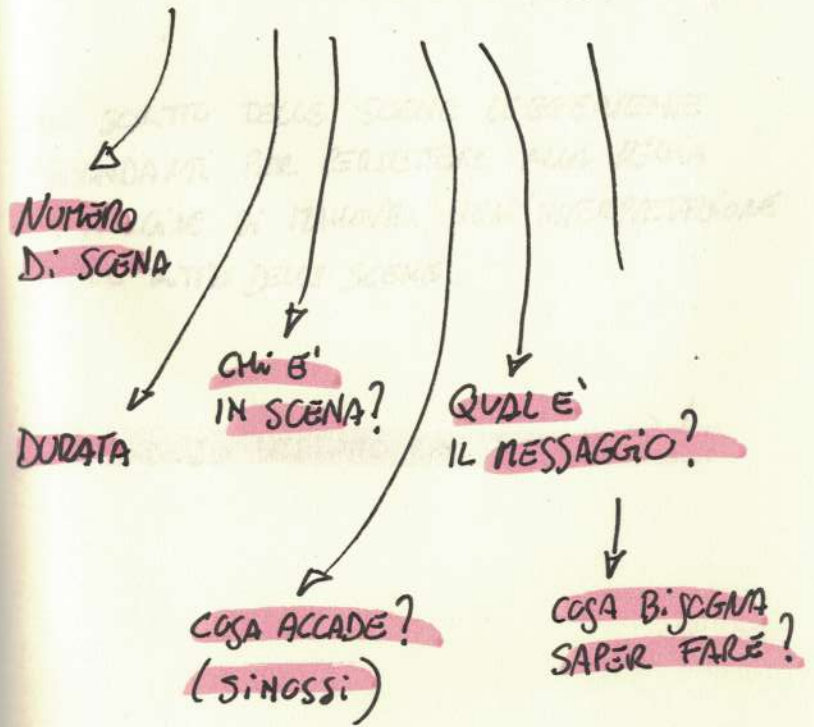 NUMERO
Di SCENA
DURATA
CHi E'
IN SCENA?
QUAL E'
IL MESSAGGiO?
COSA ACCADE?
(SiNOSSi)
COSA BiSOGNA
SAPER FARE?